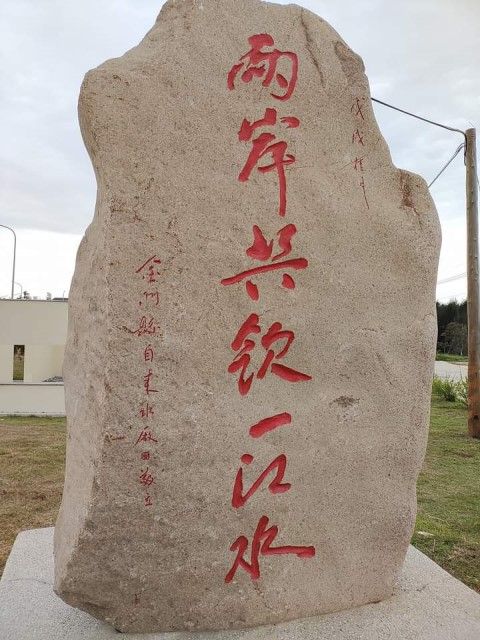 戊戌
兩岸共飲一江水
金門縣自來水廠 敬立